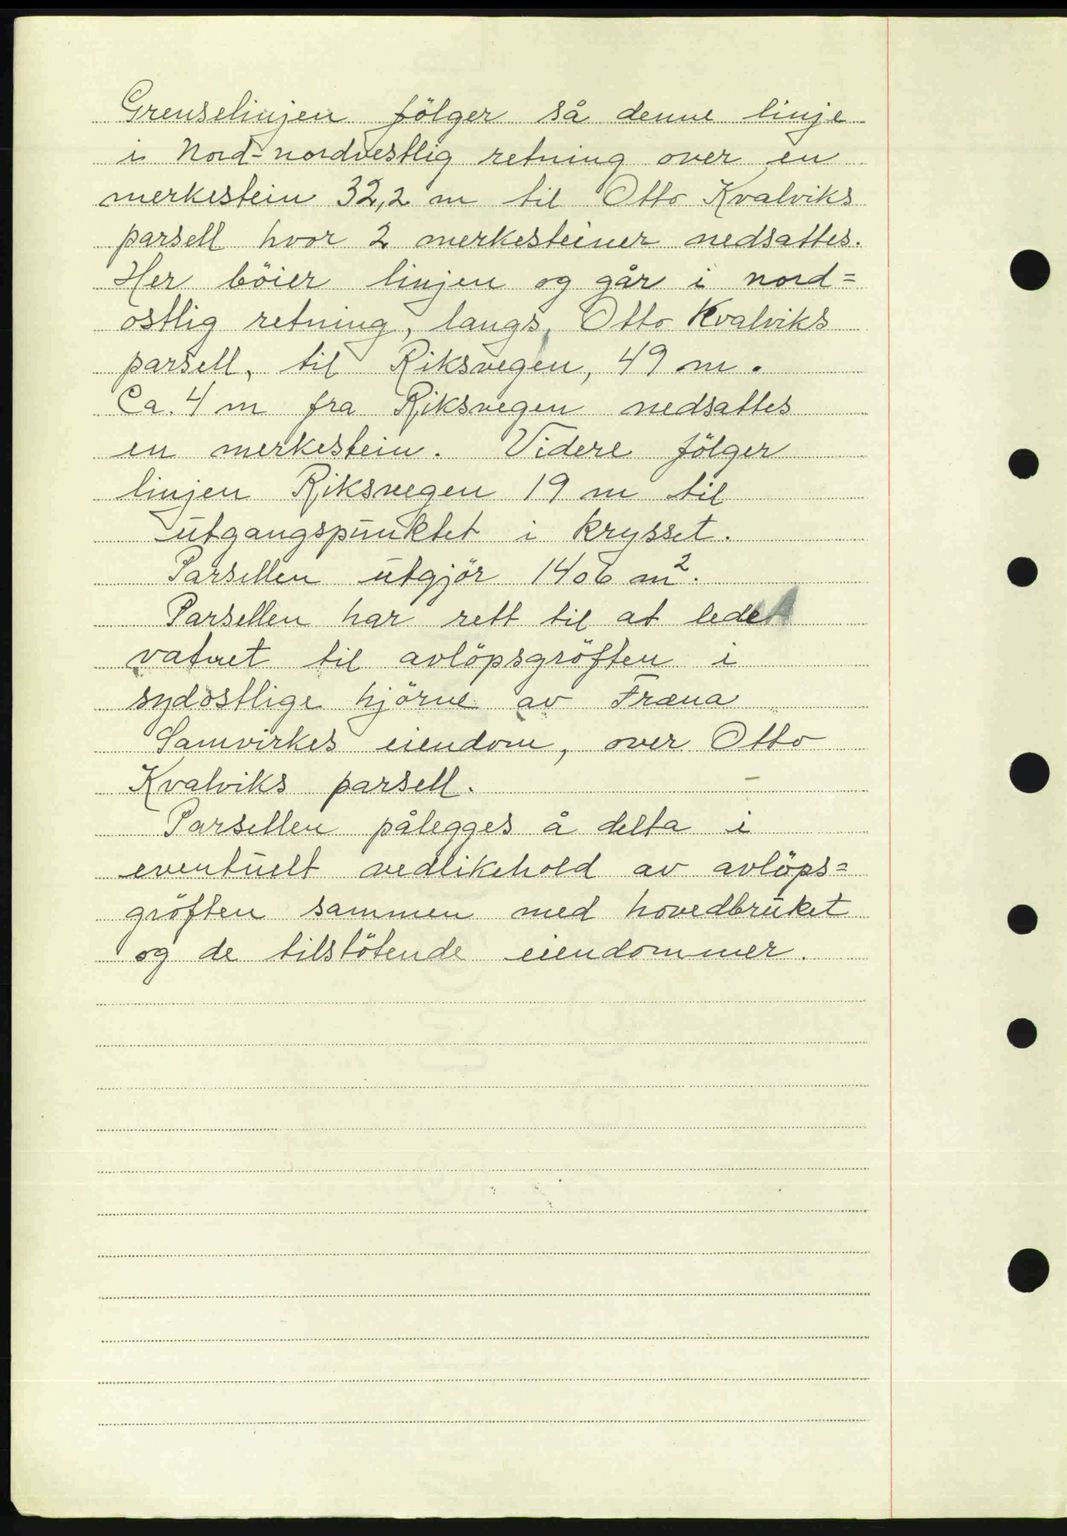 Grenselinjen fölger så denne linje
i Nord-nordvestlig retning over en
merkestein 32,2 m til Otto Kvalviks
parsell hvor 2 merkesteiner nedsattes.
Her böier linjen og går i nord=
östlig retning, langs, Otto Kvalviks
parsell, til Riksvegen, 49 m.
Ca. 4 m fra Riksvegen nedsattes
en merkestein. Videre fölger
linjen Riksvegen 19 m til
utgangspunktet i krysset.
Parsellen utgjör 1406 m².
Parsellen har rett til at lede
vatnet til avlöpsgröften i
sydöstlige hjörne av Fræna
Samvirkes eiendom, over Otto
Kvalviks parsell.
Parsellen pålegges å delta i
eventuelt vedlikehold av avlöps=
gröften sammen med hovedbruket
og de tilstötende eiendommer.